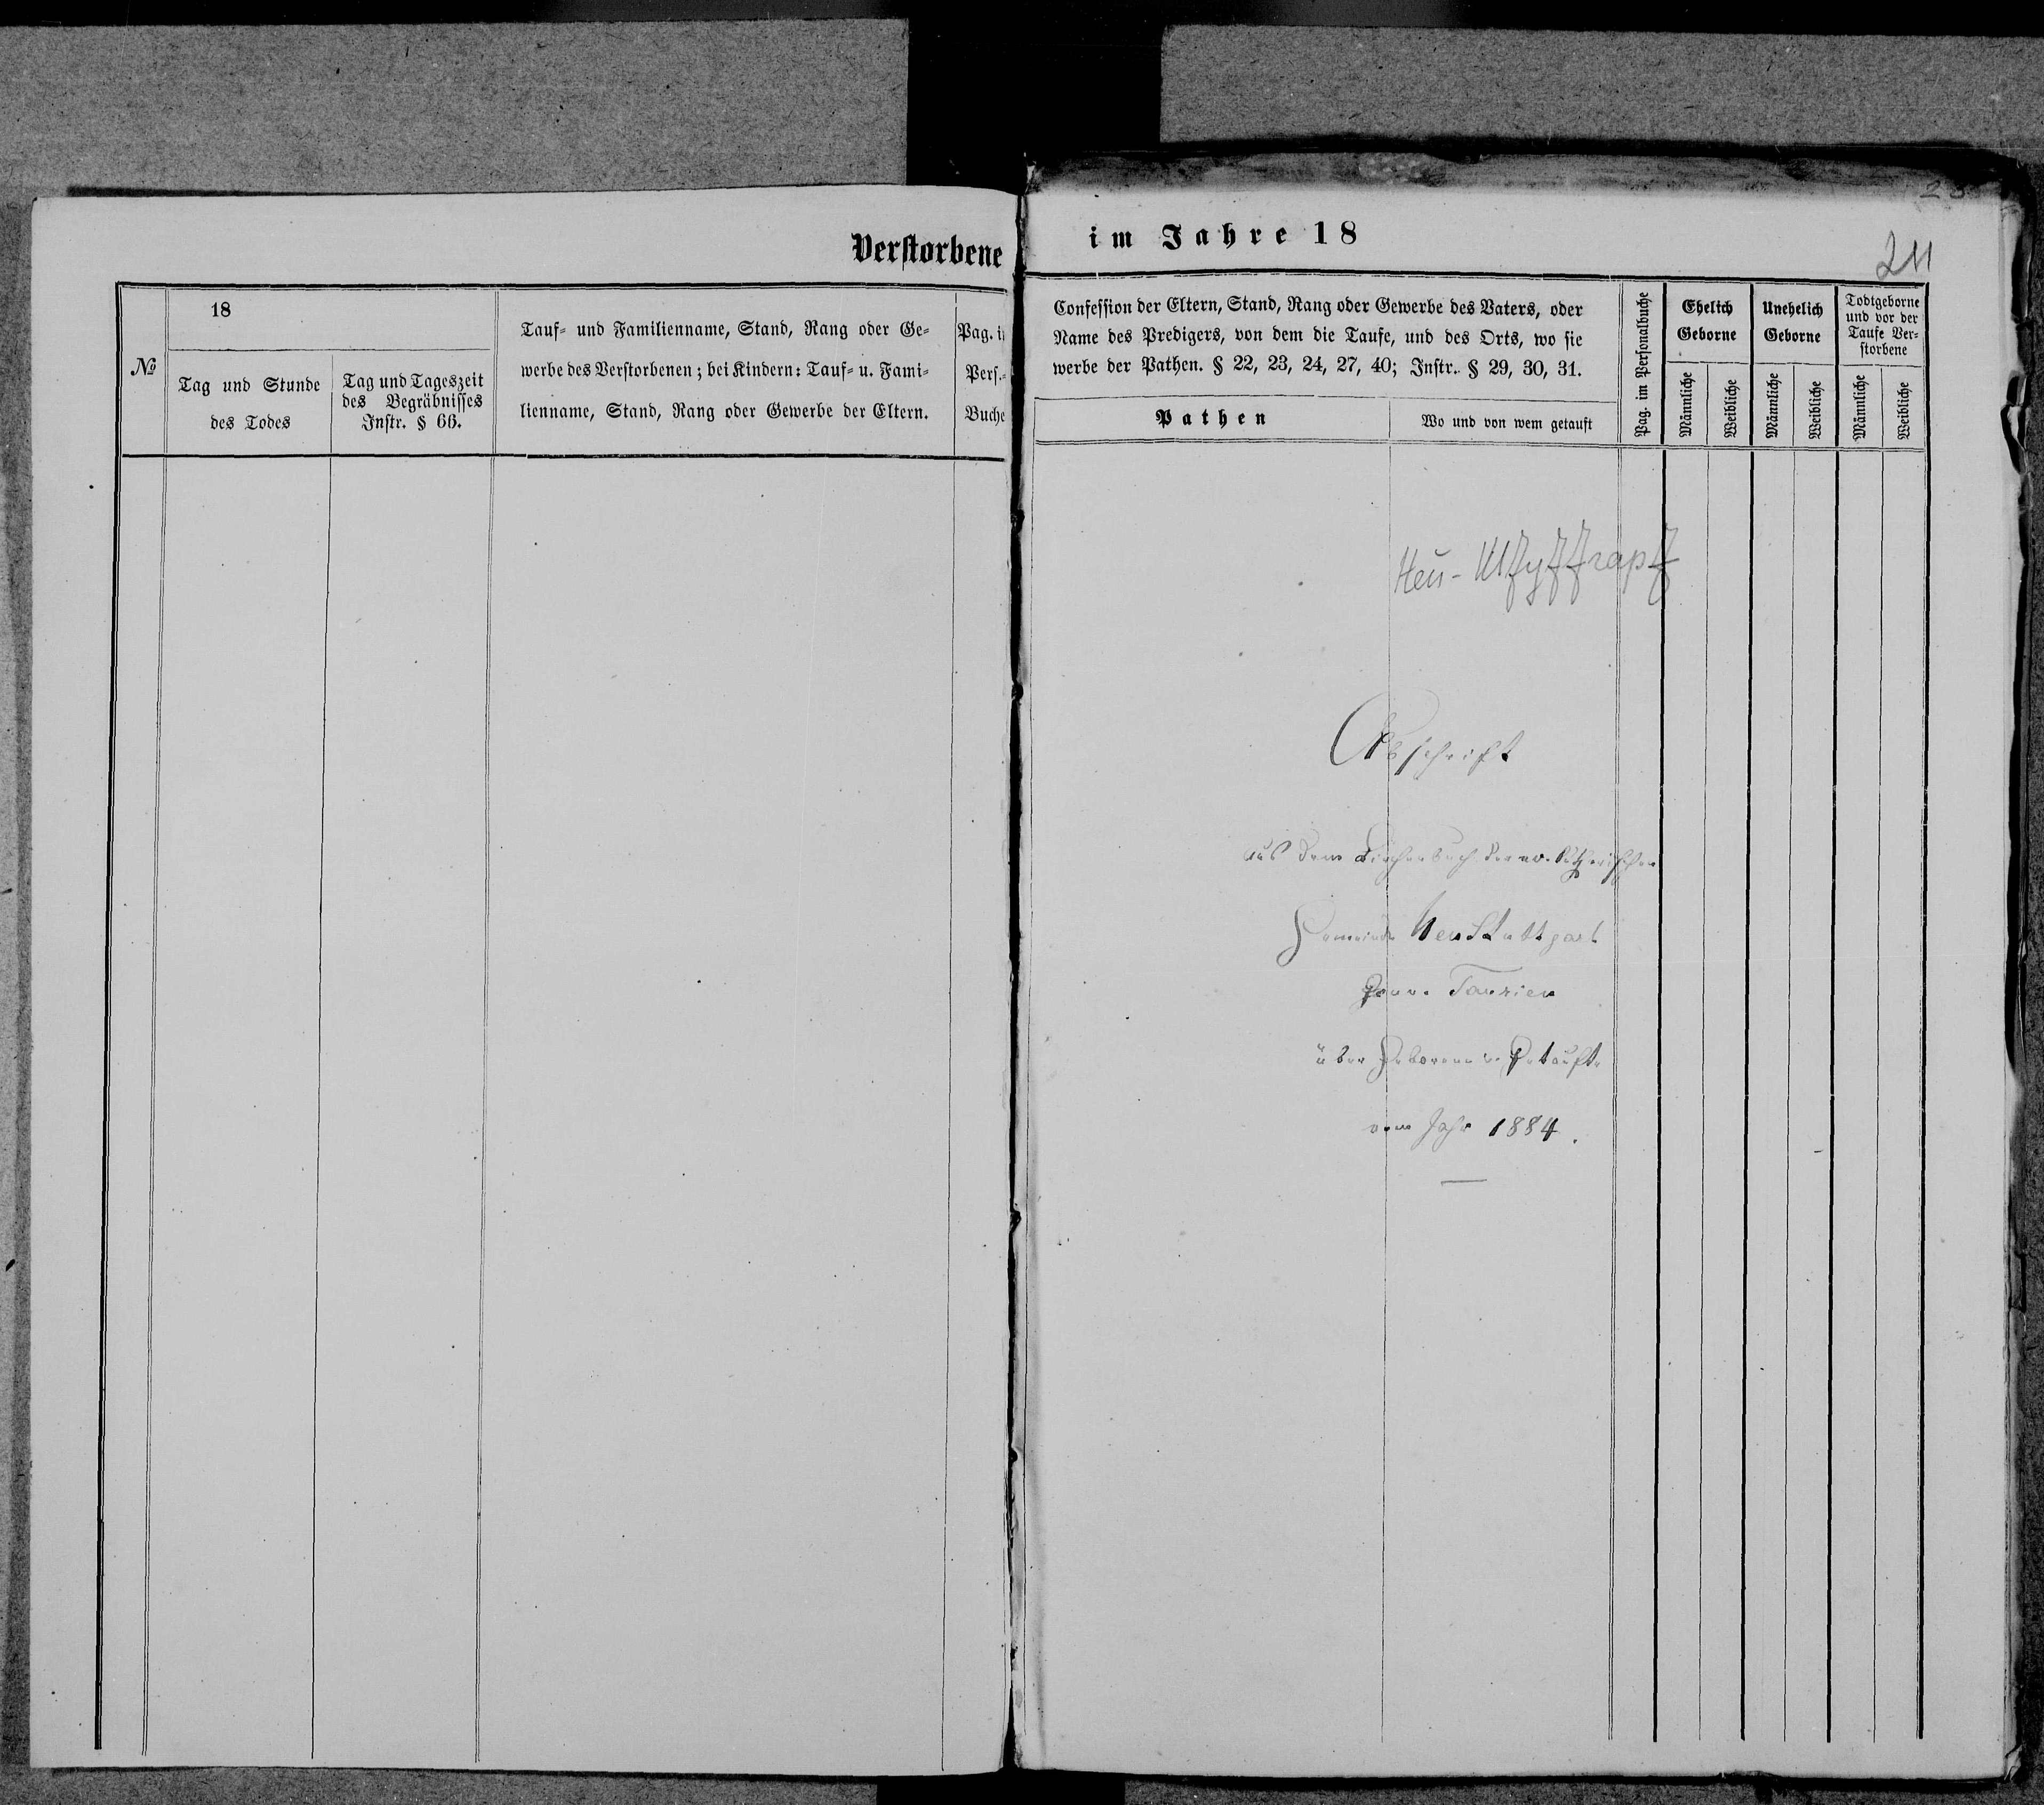 Verstorbene
№
18
Tag und Stunde
des Todes
Tag und Tageszeit
des Begräbnisses
Instr. § 66.
Tauf- und Familienname, Stand, Rang oder Ge-
werbe des Verstorbenen; bei Kindern: Tauf- u. Fami-
lienname, Stand, Rang oder Gewerbe der Eltern.
Pag. i
Pers.-
Buche
im Jahre 18
211
Confession der Eltern, Stand, Rang oder Gewerbe des Vaters, oder
Name des Predigers, von dem die Taufe, und des Orts, wo sie
werbe der Pathen. § 22, 23, 24, 27, 40; Instr. § 29, 30, 31.
Pathen
Wo und von wem getauft
Pag. im Personalbuche
Ehelich
Geborne
Männliche
Weibliche
Unehelich
Geborne
Männliche
Weibliche
Todtgeborne
und vor der
Taufe Ver-
storbene
Männliche
Weibliche
Abschrift
aus dem Kirchenbuch der ev. lutherischen
Gemeinde Neu Stuttgart
Gouv. Taurien
über Geborene u. Getaufte
vom Jahr 1884.